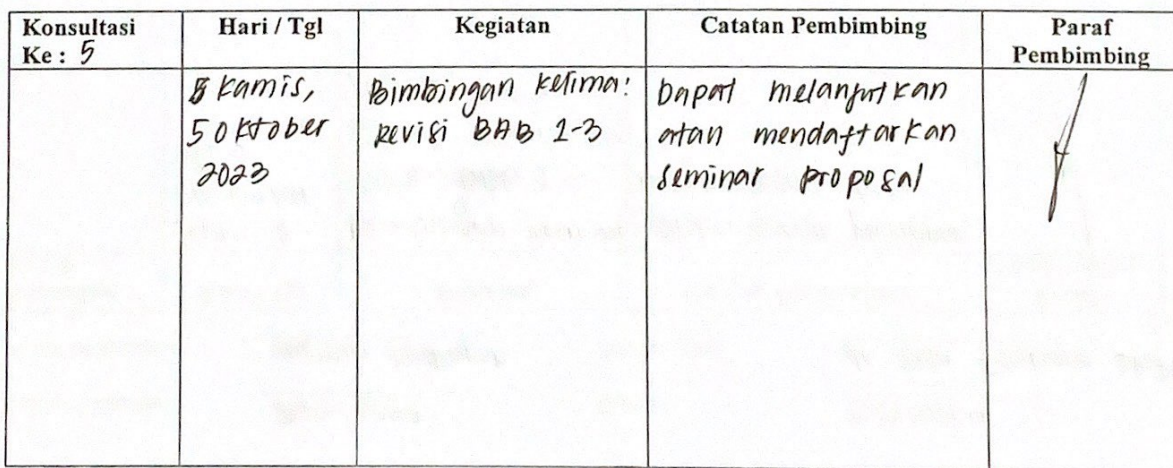 Konsultasi Ke : 5
Hari / Tgl
Kegiatan
Catatan Pembimbing
Paraf Pembimbing
Kamis,
5 Oktober
2023
Bimbingan kelima:
Revisi BAB 1-3
Dapat melanjutkan
atau mendaftarkan
seminar proposal